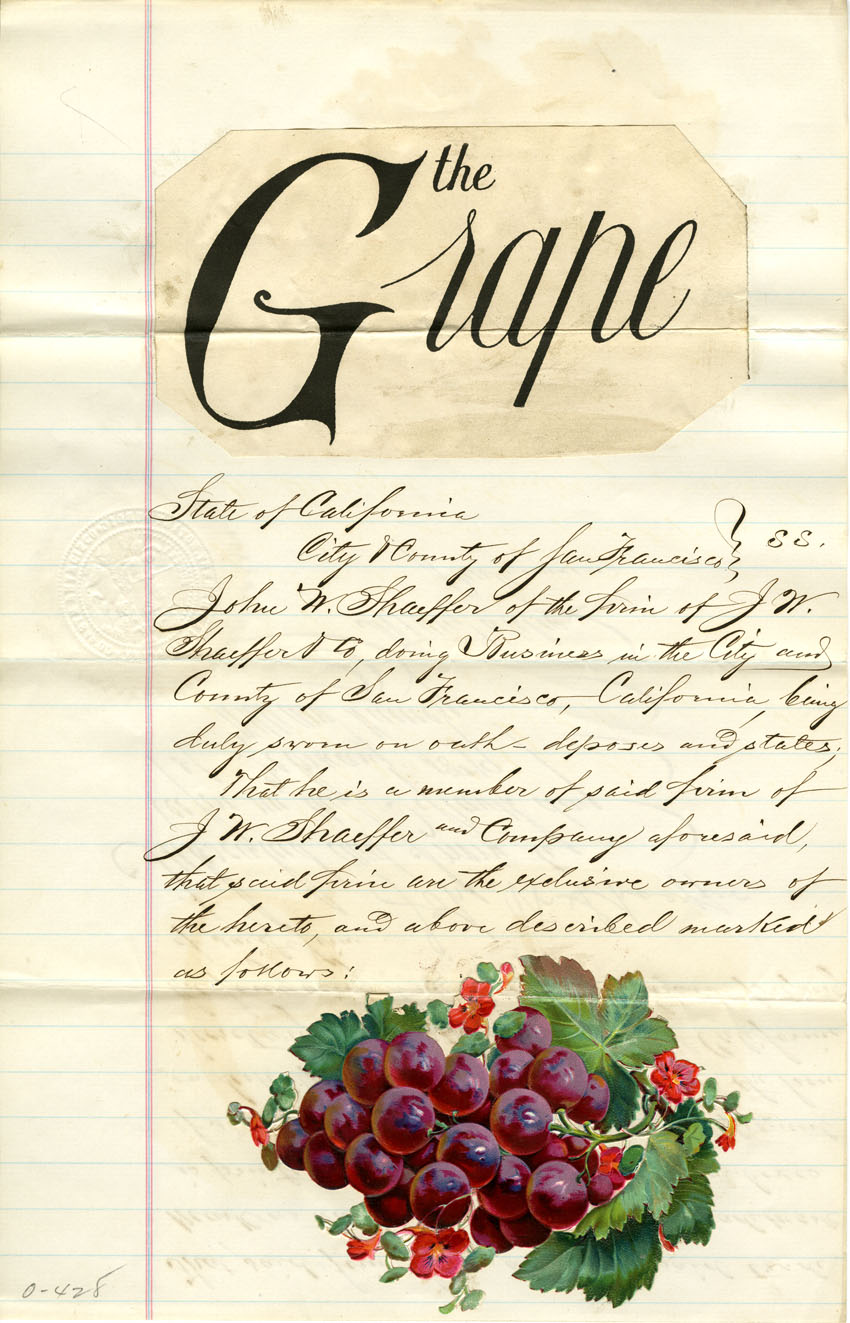 the
Grape
State of California
City & County of San Francisco } SS.
John W. Shaeffer of the firm of J W.
Shaeffer & Co, doing Business in the City and
County of San Francisco, California, being
duly sworn on oath - deposes and states;
That he is a member of said firm of
J W. Shaeffer and Company aforesaid,
that said firm are the exclusive owners of
the hereto, and above described marked
as follows:
0-428